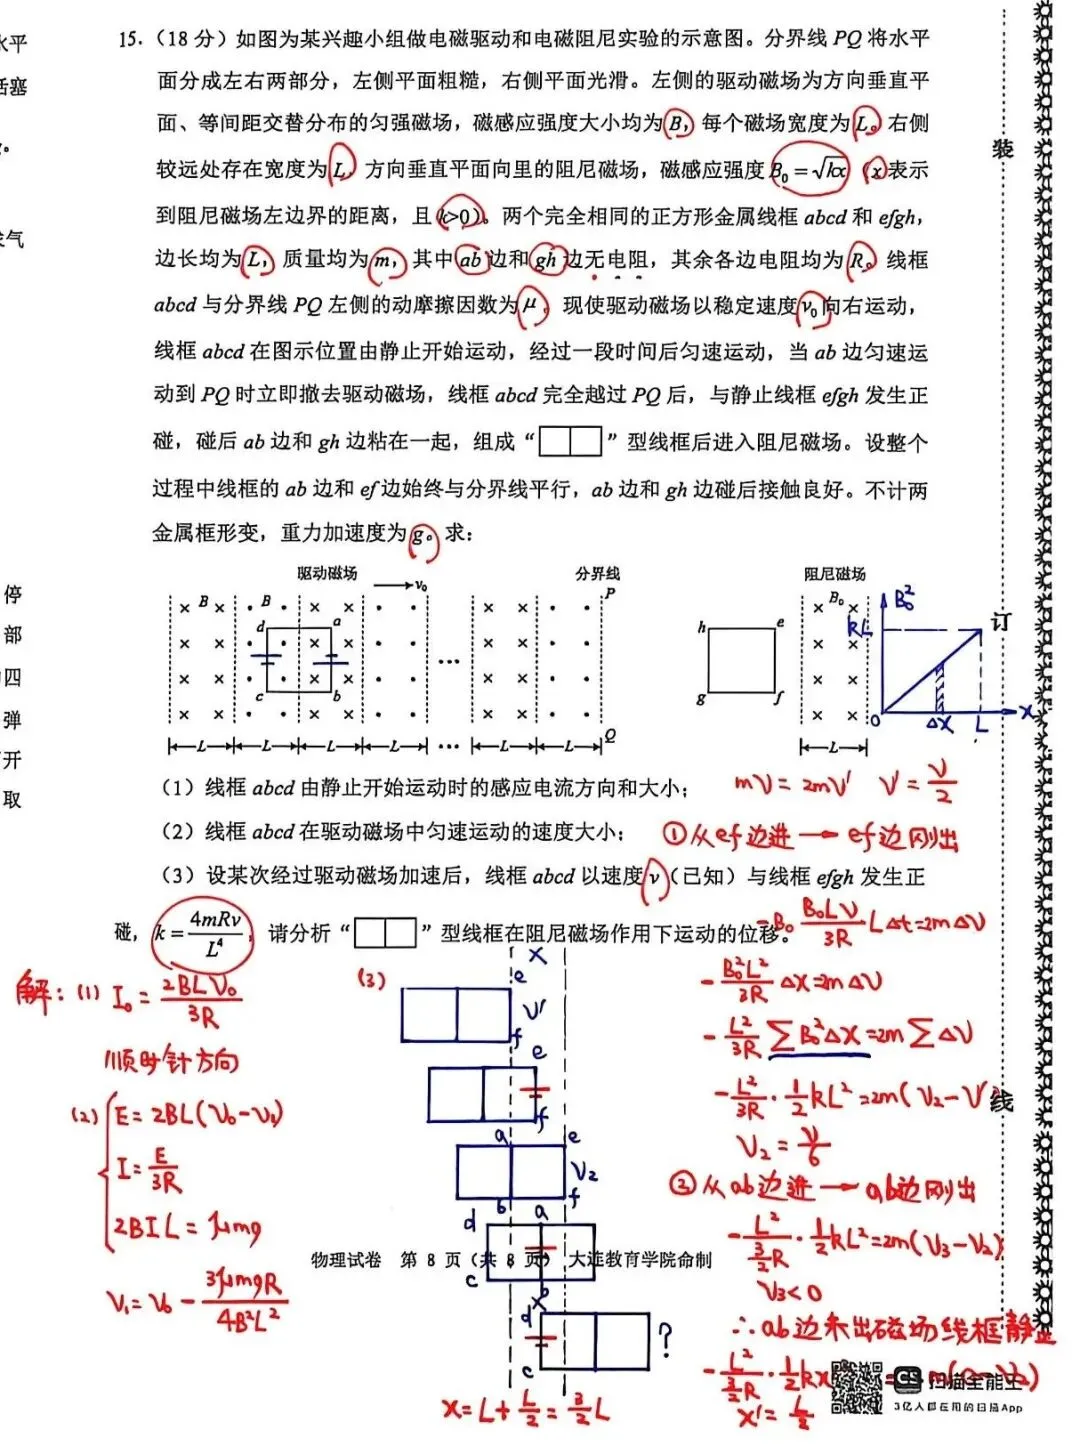 水平
活塞
15.（18 分）如图为某兴趣小组做电磁驱动和电磁阻尼实验的示意图。分界线 PQ 将水平
面分成左右两部分，左侧平面粗糙，右侧平面光滑。左侧的驱动磁场为方向垂直平
面、等间距交替分布的匀强磁场，磁感应强度大小均为 B，每个磁场宽度为 L。右侧
较远处存在宽度为 L，方向垂直平面向里的阻尼磁场，磁感应强度 B₀＝√kx（x 表示
到阻尼磁场左边界的距离，且 k>0）。两个完全相同的正方形金属线框 abcd 和 efgh，
边长均为 L，质量均为 m，其中 ab 边和 gh 边无电阻，其余各边电阻均为 R。线框
abcd 与分界线 PQ 左侧的动摩擦因数为 μ。现使驱动磁场以稳定速度 v₀ 向右运动，
线框 abcd 在图示位置由静止开始运动，经过一段时间后匀速运动，当 ab 边匀速运
动到 PQ 时立即撤去驱动磁场，线框 abcd 完全越过 PQ 后，与静止线框 efgh 发生正
碰，碰后 ab 边和 gh 边粘在一起，组成“ ”型线框后进入阻尼磁场。设整个
过程中线框的 ab 边和 ef 边始终与分界线平行，ab 边和 gh 边碰后接触良好。不计两
金属框形变，重力加速度为 g。求：
停
部
四
弹
开
取
装
订
线
驱动磁场 v₀ 分界线 阻尼磁场
B B P B₀ B₀²
d a h e kL
c b g f
Q 0 ΔX L X
L L L L ... L L L
（1）线框 abcd 由静止开始运动时的感应电流方向和大小；
mv = 2mv' v' = v/2
（2）线框 abcd 在驱动磁场中匀速运动的速度大小；
①从ef边进 → ef边刚出
（3）设某次经过驱动磁场加速后，线框 abcd 以速度 v（已知）与线框 efgh 发生正
碰，k＝4mRv/L⁴，请分析“ ”型线框在阻尼磁场作用下运动的位移。
解：(1) I₀ = 2BLV₀/3R
顺时针方向
(2) E = 2BL(V₀-V₁)
I = E/3R
2BIL = μmg
V₁ = V₀ - 3μmgR/4B²L²
(3)
x
e
v'
f
e
f
a e
V₂
b f
d a
c b
x'
d
c
?
x = L + L/2 = 3/2 L
-B₀ B₀Lv/3R LΔt = 2mΔv
-B₀²L²/3R Δx = 2mΔv
-L²/3R ∑B₀²Δx = 2m∑Δv
-L²/3R · 1/2 kL² = 2m(V₂-V')
V₂ = v/6
②从ab边进 → ab边刚出
-L²/(3/2 R) · 1/2 kL² = 2m(V₃-V₂)
V₃<0
∴ab边未出磁场线框静止
x' = L/2
物理试卷 第 8 页（共 8 页） 大连教育学院命制
CS 扫描全能王
3亿人都在用的扫描App